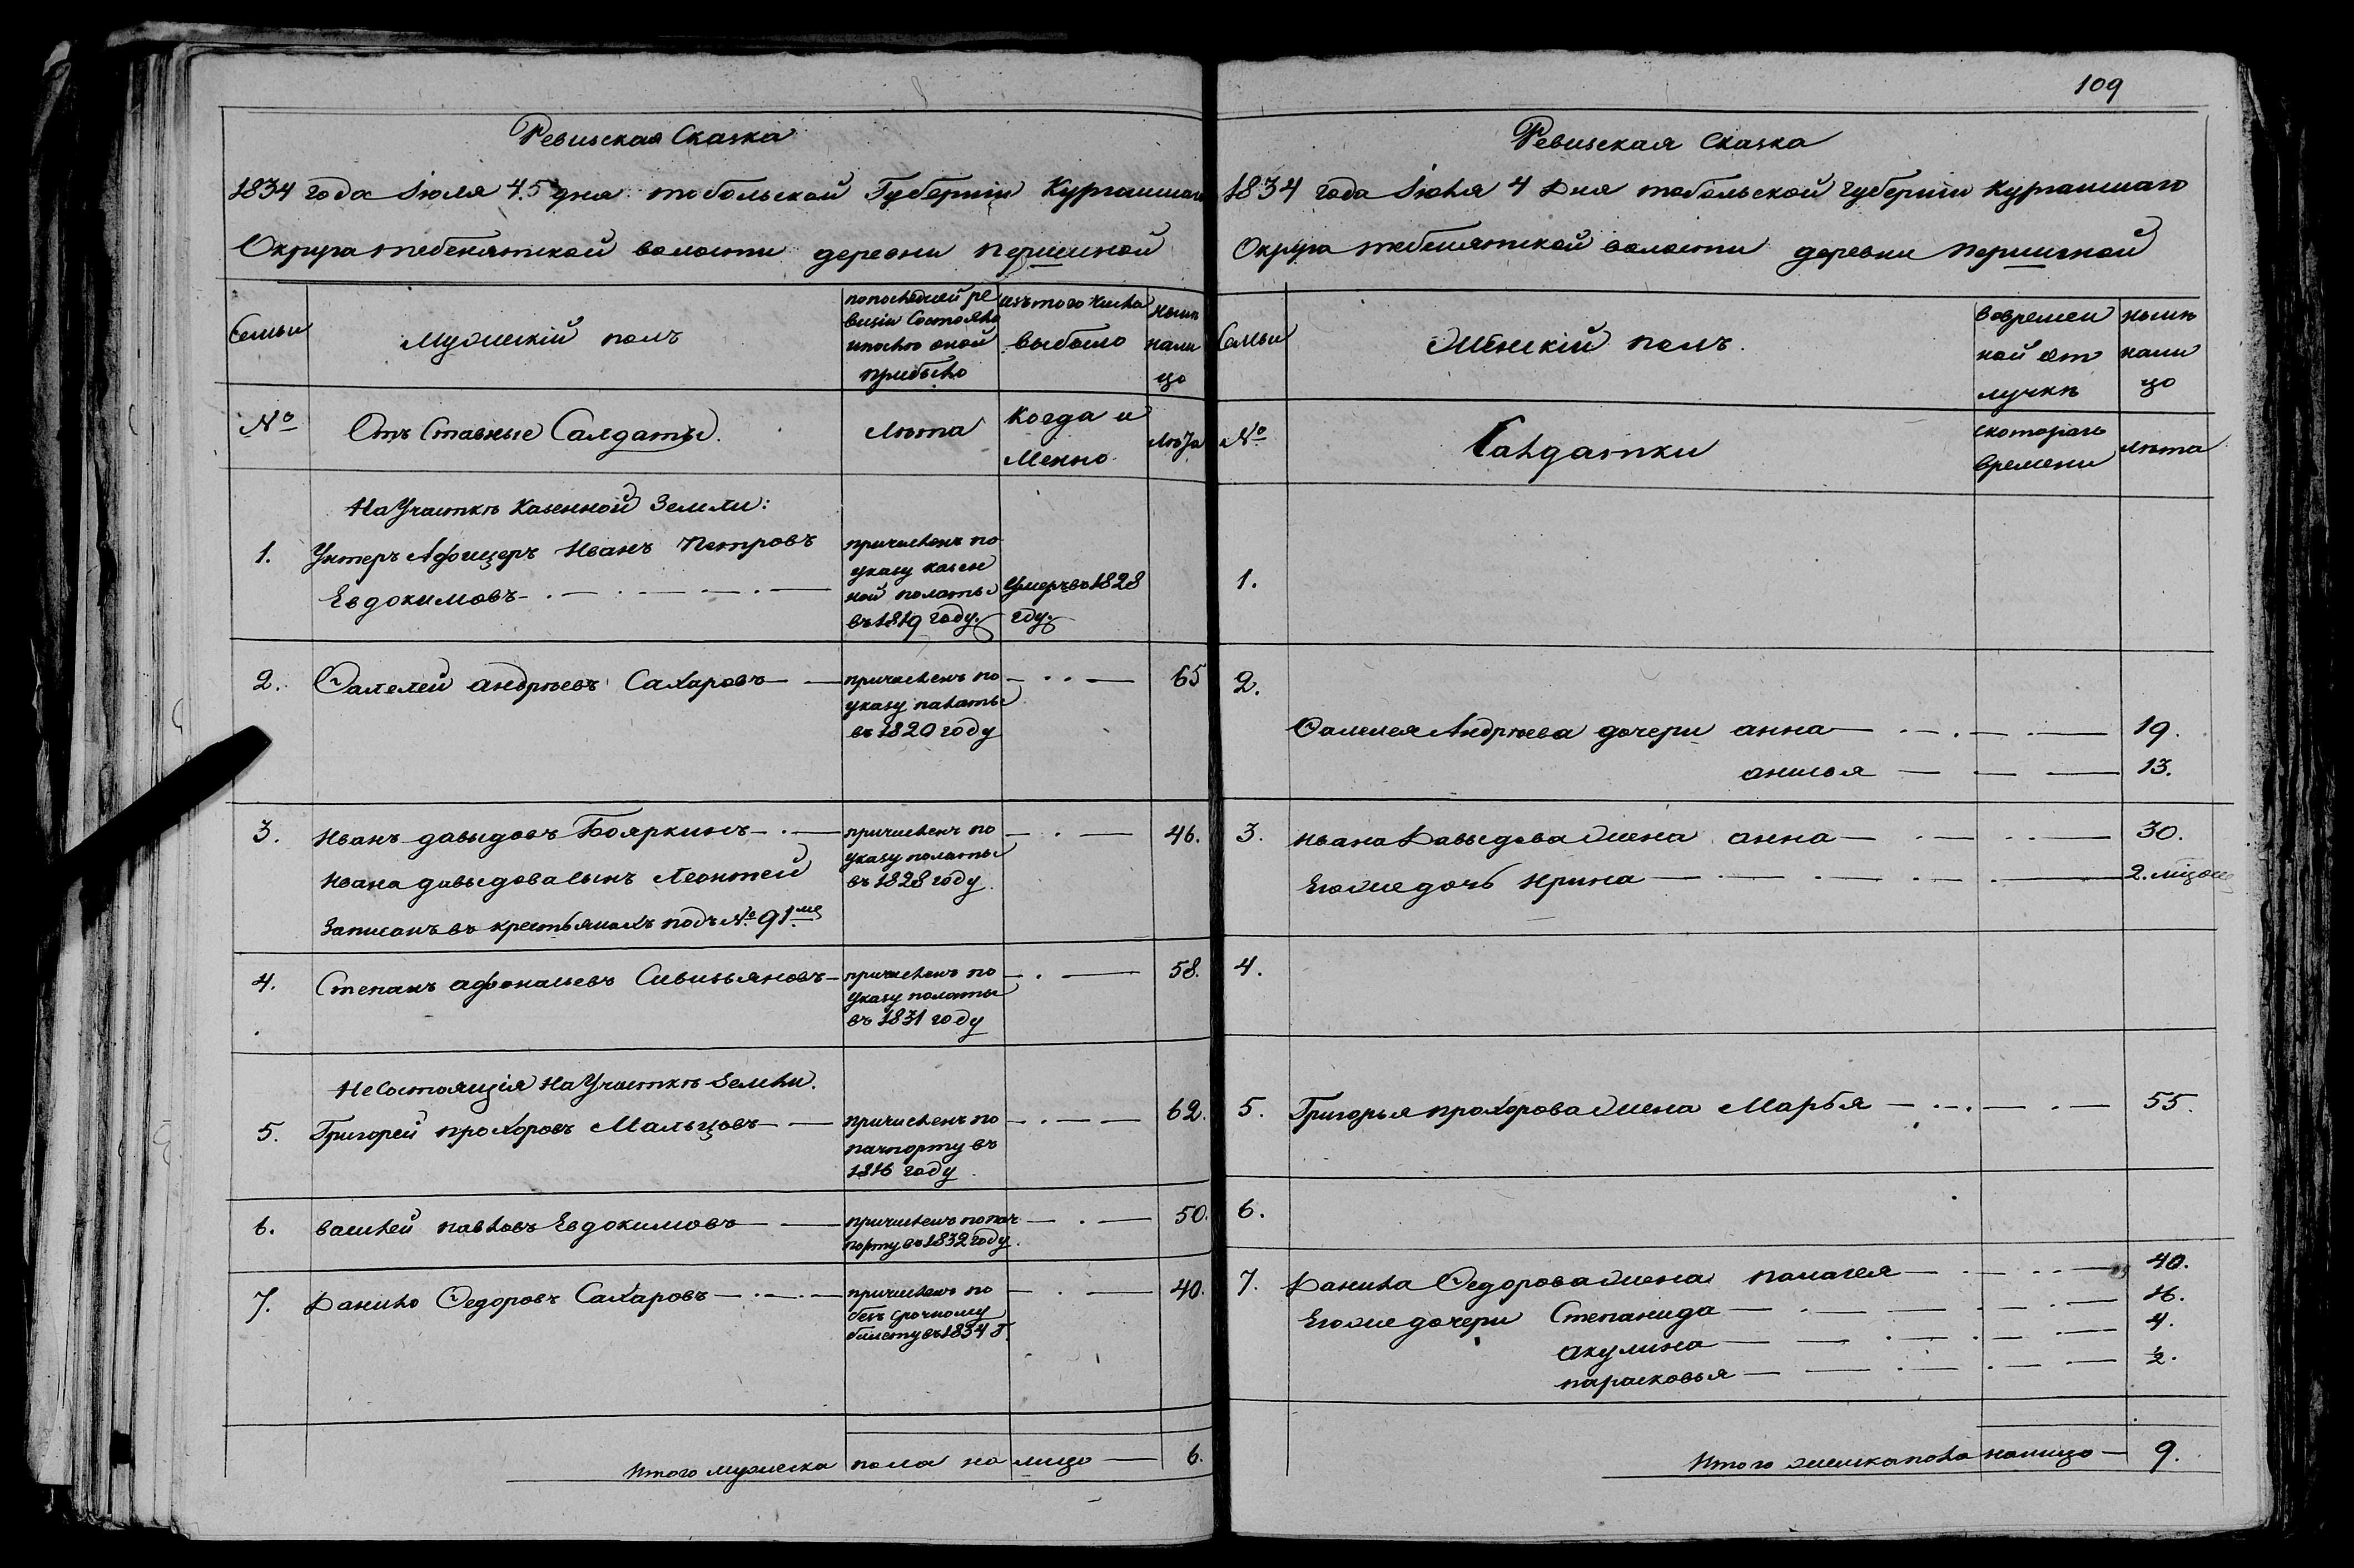 Ревизская Сказка
1834 года Іюля 4.5 дня тобольской Губерніи Курганшаго
Округа тебенятской волости деревни першиной
Семьи
Мужескій полъ
попоследней ре
визіи Состояло
ипосле оной
прибыло
изътого числа
выбыло
ныне
нали
цо
№
Отъ Ставные Салдаты.
лета
когда и
Менно
лета
На Участке казенной Земли:
1. Унтеръ Афоицеръ Иванъ Петровъ
Евдокимовъ
причисленъ по
указу казен
ной полаты
въ 1819 году.
Умеръ въ 1828
году.
2. Фалелей андреевъ Сахаровъ
причисленъ по
указу палаты
въ 1820 году
65
3. Иванъ давыдовъ Бояркинъ
Ивана давыдова сынъ Леонтей
Записанъ въ крестьянахъ подъ № 91.мъ
причисленъ по
указу полаты
въ 1828 году.
46.
4. Степанъ афонасьевъ Сивизьяновъ
причисленъ по
указу полаты
въ 1831 году
58.
Не Состоящія На Участке Земли.
5. Григорей прохоровъ Мальцовъ
причисленъ по
пачпорту въ
1816 году.
62.
6. василей павловъ Евдокимовъ
причисленъ по пач
порту въ 1832 году.
50.
7. Данило Федоровъ Сахаровъ
причисленъ по
безъ срочному
билету въ 1834 г.
40.
Итого мужеска пола на лицо 6.
109
Ревизская Сказка
1834 года Іюля 4 Дня тобольской губерніи курганшаго
Округа тебенятской волости деревни першиной
Семьи
Женскій полъ.
вовремен
ной от
лучке
ныне
нали
цо
№
Салдатки
скотораго
времени
лета
1.
2.
Фалелея Андреева дочери анна 19.
анисья 13.
3. Ивана Давыдова жена анна 30.
Егоже дочь Ирина 2. місяц
4.
5. Григорья прохорова жена Марья 55.
6.
7. Данила Федорова жена палагея 40.
Егоже дочери Степанида 16.
акулина 4.
парасковья ½.
Итого женска пола налицо 9.